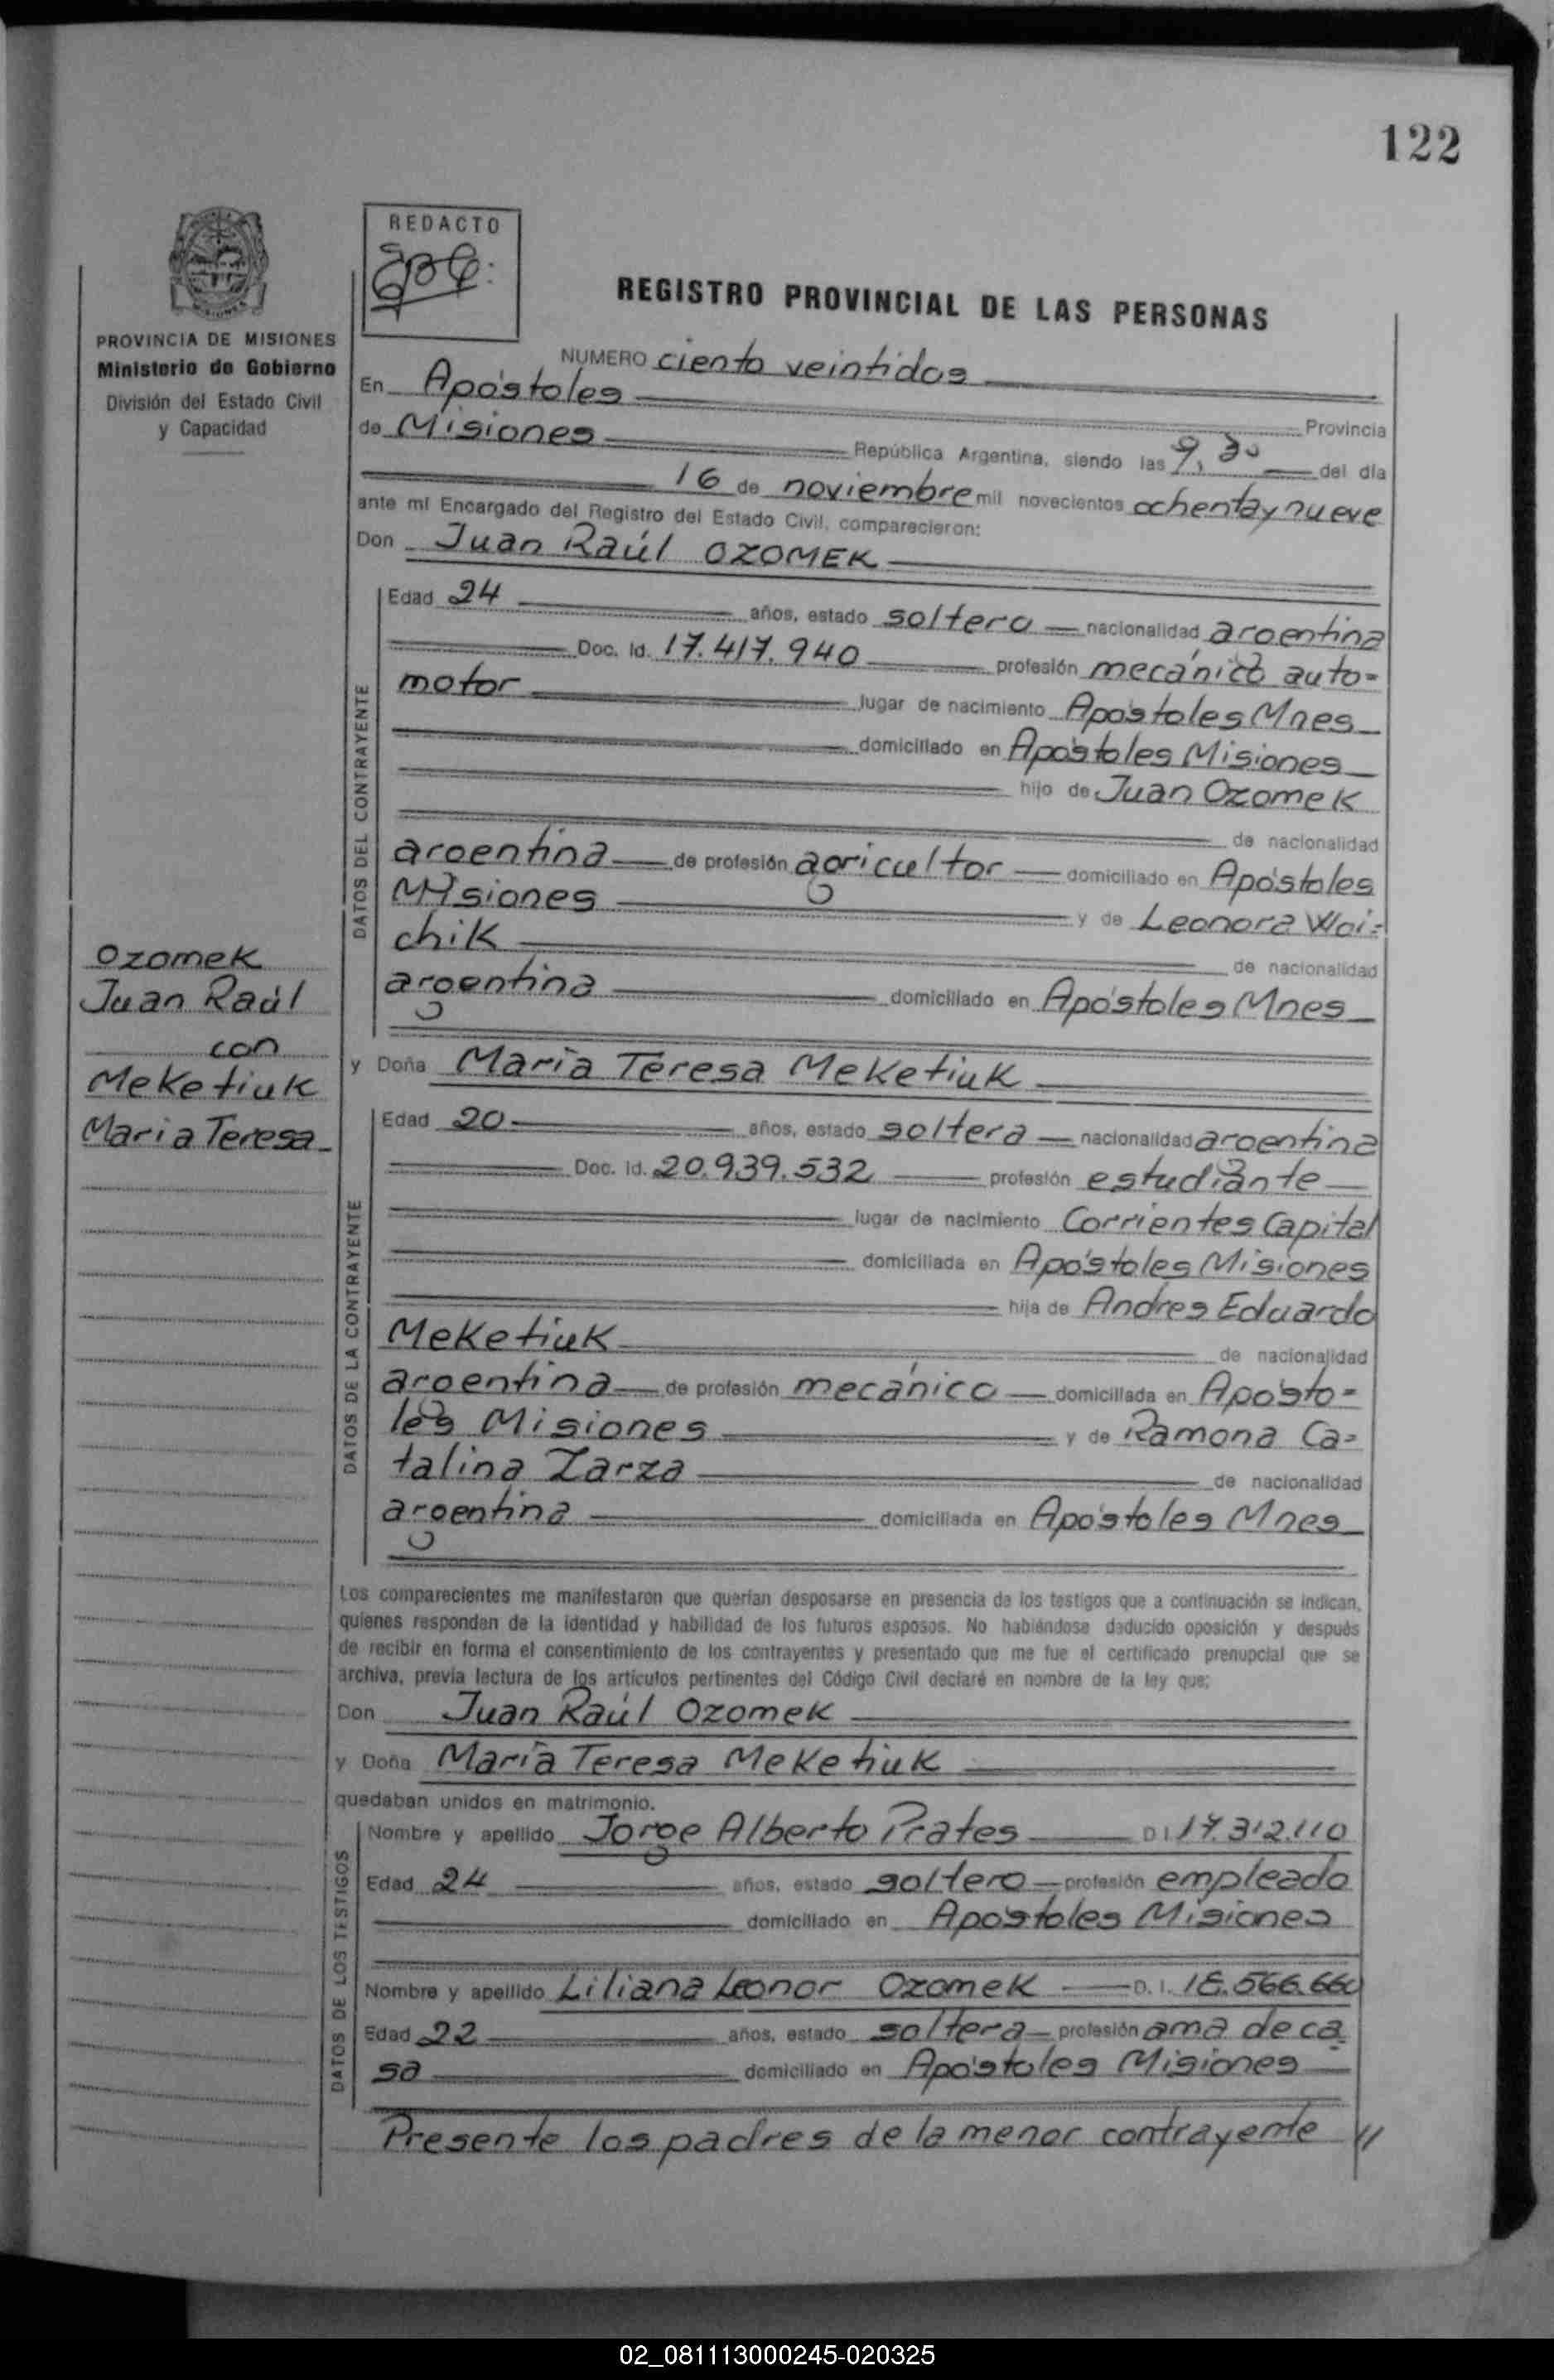 122
REDACTO
REGISTRO PROVINCIAL DE LAS PERSONAS
PROVINCIA DE MISIONES
Ministerio de Gobierno
División del Estado Civil
y Capacidad
NUMERO ciento veintidos
En Apóstoles Provincia
de Misiones República Argentina, siendo las 9,30 del día
16 de noviembre mil novecientos ochenta y nueve
ante mí Encargado del Registro del Estado Civil, comparecieron:
Don Juan Raúl OZOMEK
DATOS DEL CONTRAYENTE
Edad 24 años, estado soltero nacionalidad argentina
Doc. Id. 17.417.940 profesión mecánico auto=
motor lugar de nacimiento Apóstoles Mnes
domiciliado en Apóstoles Misiones
hijo de Juan Ozomek
de nacionalidad
argentina de profesión agricultor domiciliado en Apóstoles
Misiones y de Leonora Woi=
chik de nacionalidad
argentina domiciliado en Apóstoles Mnes
Ozomek
Juan Raúl
con
Meketiuk
Maria Teresa
y Doña María Teresa Meketiuk
DATOS DE LA CONTRAYENTE
Edad 20 años, estado soltera nacionalidad argentina
Doc. Id. 20.939.532 profesión estudiante
lugar de nacimiento Corrientes Capital
domiciliada en Apóstoles Misiones
hija de Andres Eduardo
Meketiuk de nacionalidad
argentina de profesión mecánico domiciliada en Aposto=
les Misiones y de Ramona Ca=
talina Zarza de nacionalidad
argentina domiciliada en Apóstoles Mnes
Los comparecientes me manifestaron que querían desposarse en presencia de los testigos que a continuación se indican,
quienes responden de la identidad y habilidad de los futuros esposos. No habiéndose deducido oposición y después
de recibir en forma el consentimiento de los contrayentes y presentado que me fue el certificado prenupcial que se
archiva, previa lectura de los artículos pertinentes del Código Civil declaré en nombre de la ley que;
Don Juan Raúl Ozomek
y Doña María Teresa Meketiuk
quedaban unidos en matrimonio.
DATOS DE LOS TESTIGOS
Nombre y apellido Jorge Alberto Prates D I 17.312.110
Edad 24 años, estado soltero profesión empleado
domiciliado en Apóstoles Misiones
Nombre y apellido Liliana Leonor Ozomek D. I. 18.566.660
Edad 22 años, estado soltera profesión ama de ca
sa domiciliado en Apóstoles Misiones
Presente los padres de la menor contrayente //
02_081113000245-020325